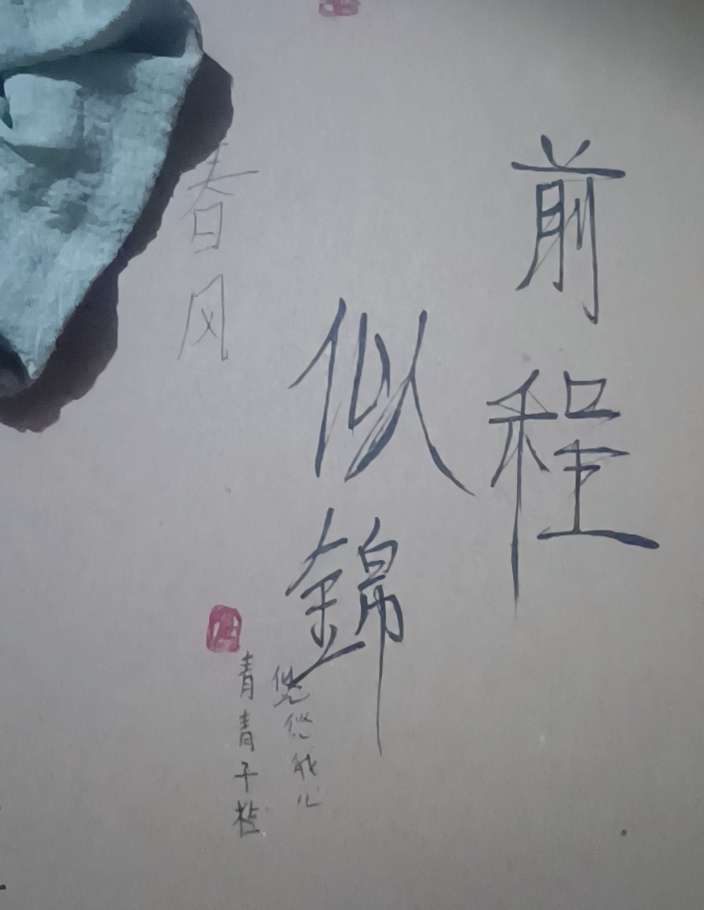 前程
似錦
春风
悠悠我心
青青子